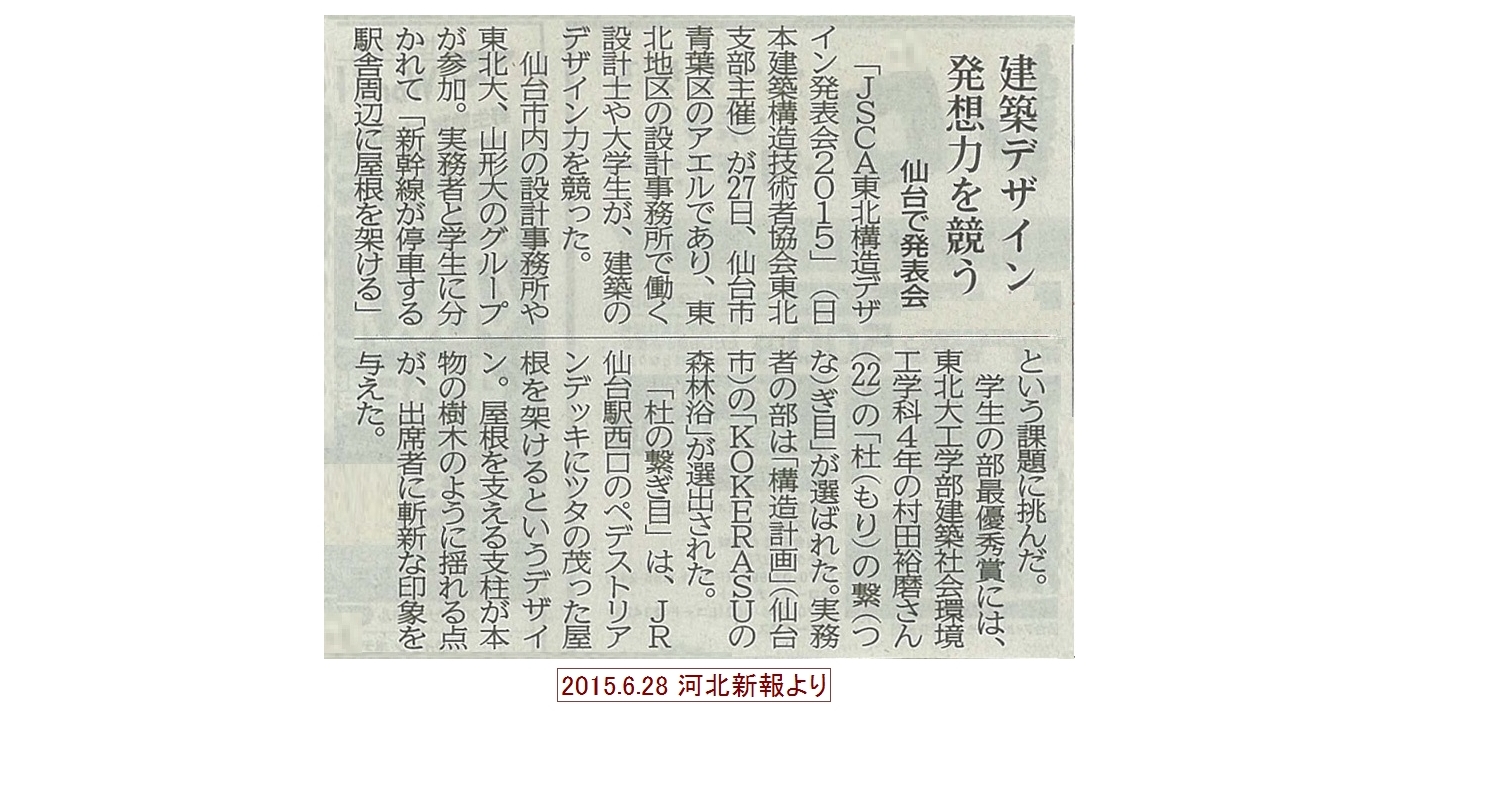 建築デザイン
発想力を競う
仙台で発表会
「ＪＳＣＡ東北構造デザ
イン発表会２０１５」（日
本建築構造技術者協会東北
支部主催）が27日、仙台市
青葉区のアエルであり、東
北地区の設計事務所で働く
設計士や大学生が、建築の
デザイン力を競った。
仙台市内の設計事務所や
東北大、山形大のグループ
が参加。実務者と学生に分
かれて「新幹線が停車する
駅舎周辺に屋根を架ける」
という課題に挑んだ。
学生の部最優秀賞には、
東北大工学部建築社会環境
工学科４年の村田裕磨さん
（22）の「杜（もり）の繋（つ
な）ぎ目」が選ばれた。実務
者の部は「構造計画」（仙台
市）の「ＫＯＫＥＲＡＳＵの
森林浴」が選出された。
「杜の繋ぎ目」は、ＪＲ
仙台駅西口のペデストリア
ンデッキにツタの茂った屋
根を架けるというデザイ
ン。屋根を支える支柱が本
物の樹木のように揺れる点
が、出席者に斬新な印象を
与えた。
2015.6.28 河北新報より